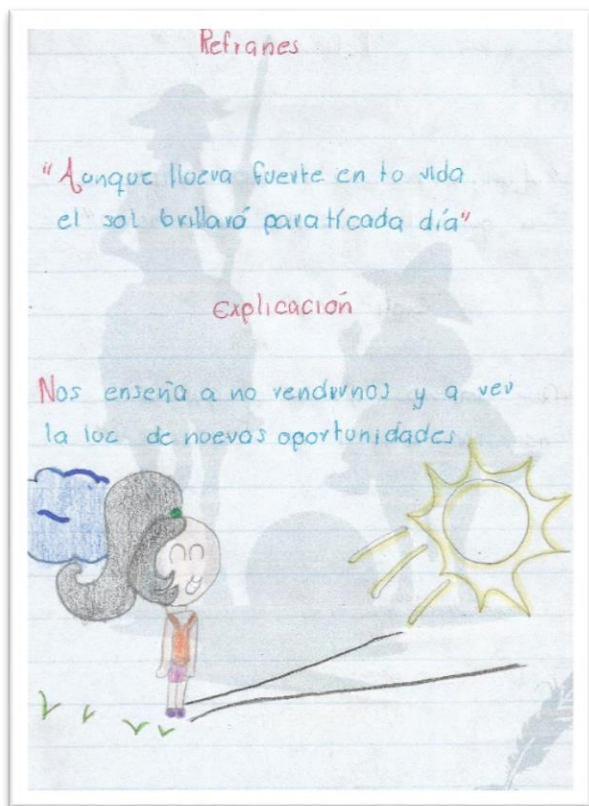 Refranes
"Aunque llueva fuerte en tu vida
el sol brillará para tí cada día"
Explicación
Nos enseña a no rendirnos y a ver
la luz de nuevas oportunidades